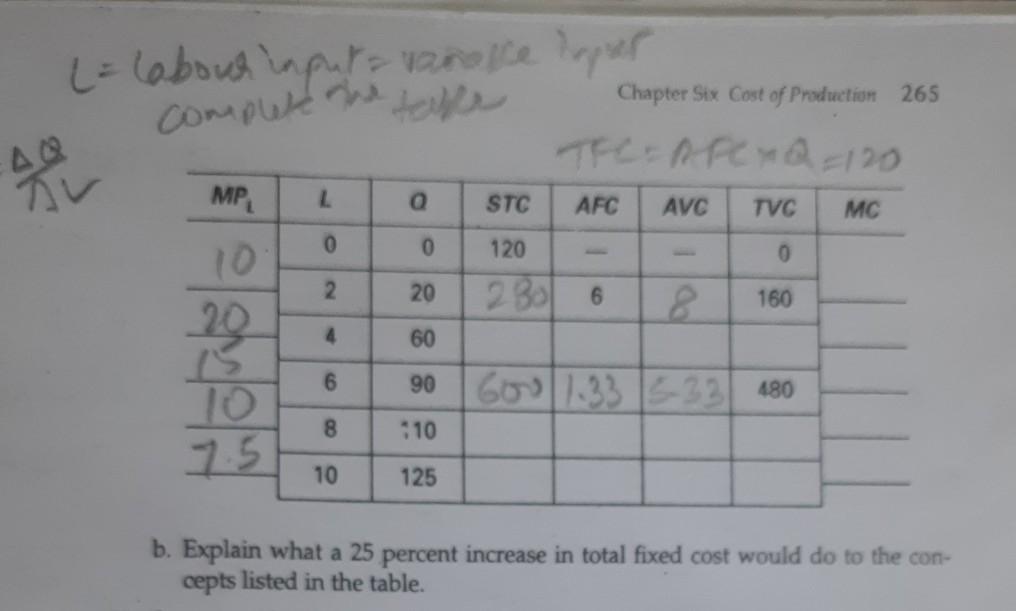 L = labour input = variable input
complete the table
Chapter Six Cost of Production 265
TFC = AFC x Q = 120
ΔQ
MPL L Q STC AFC AVC TVC MC
10 0 0 120 — — 0
20 2 20 280 6 8 160
15 4 60
10 6 90 600 1.33 5.33 480
7.5 8 110
10 125
b. Explain what a 25 percent increase in total fixed cost would do to the con-
cepts listed in the table.